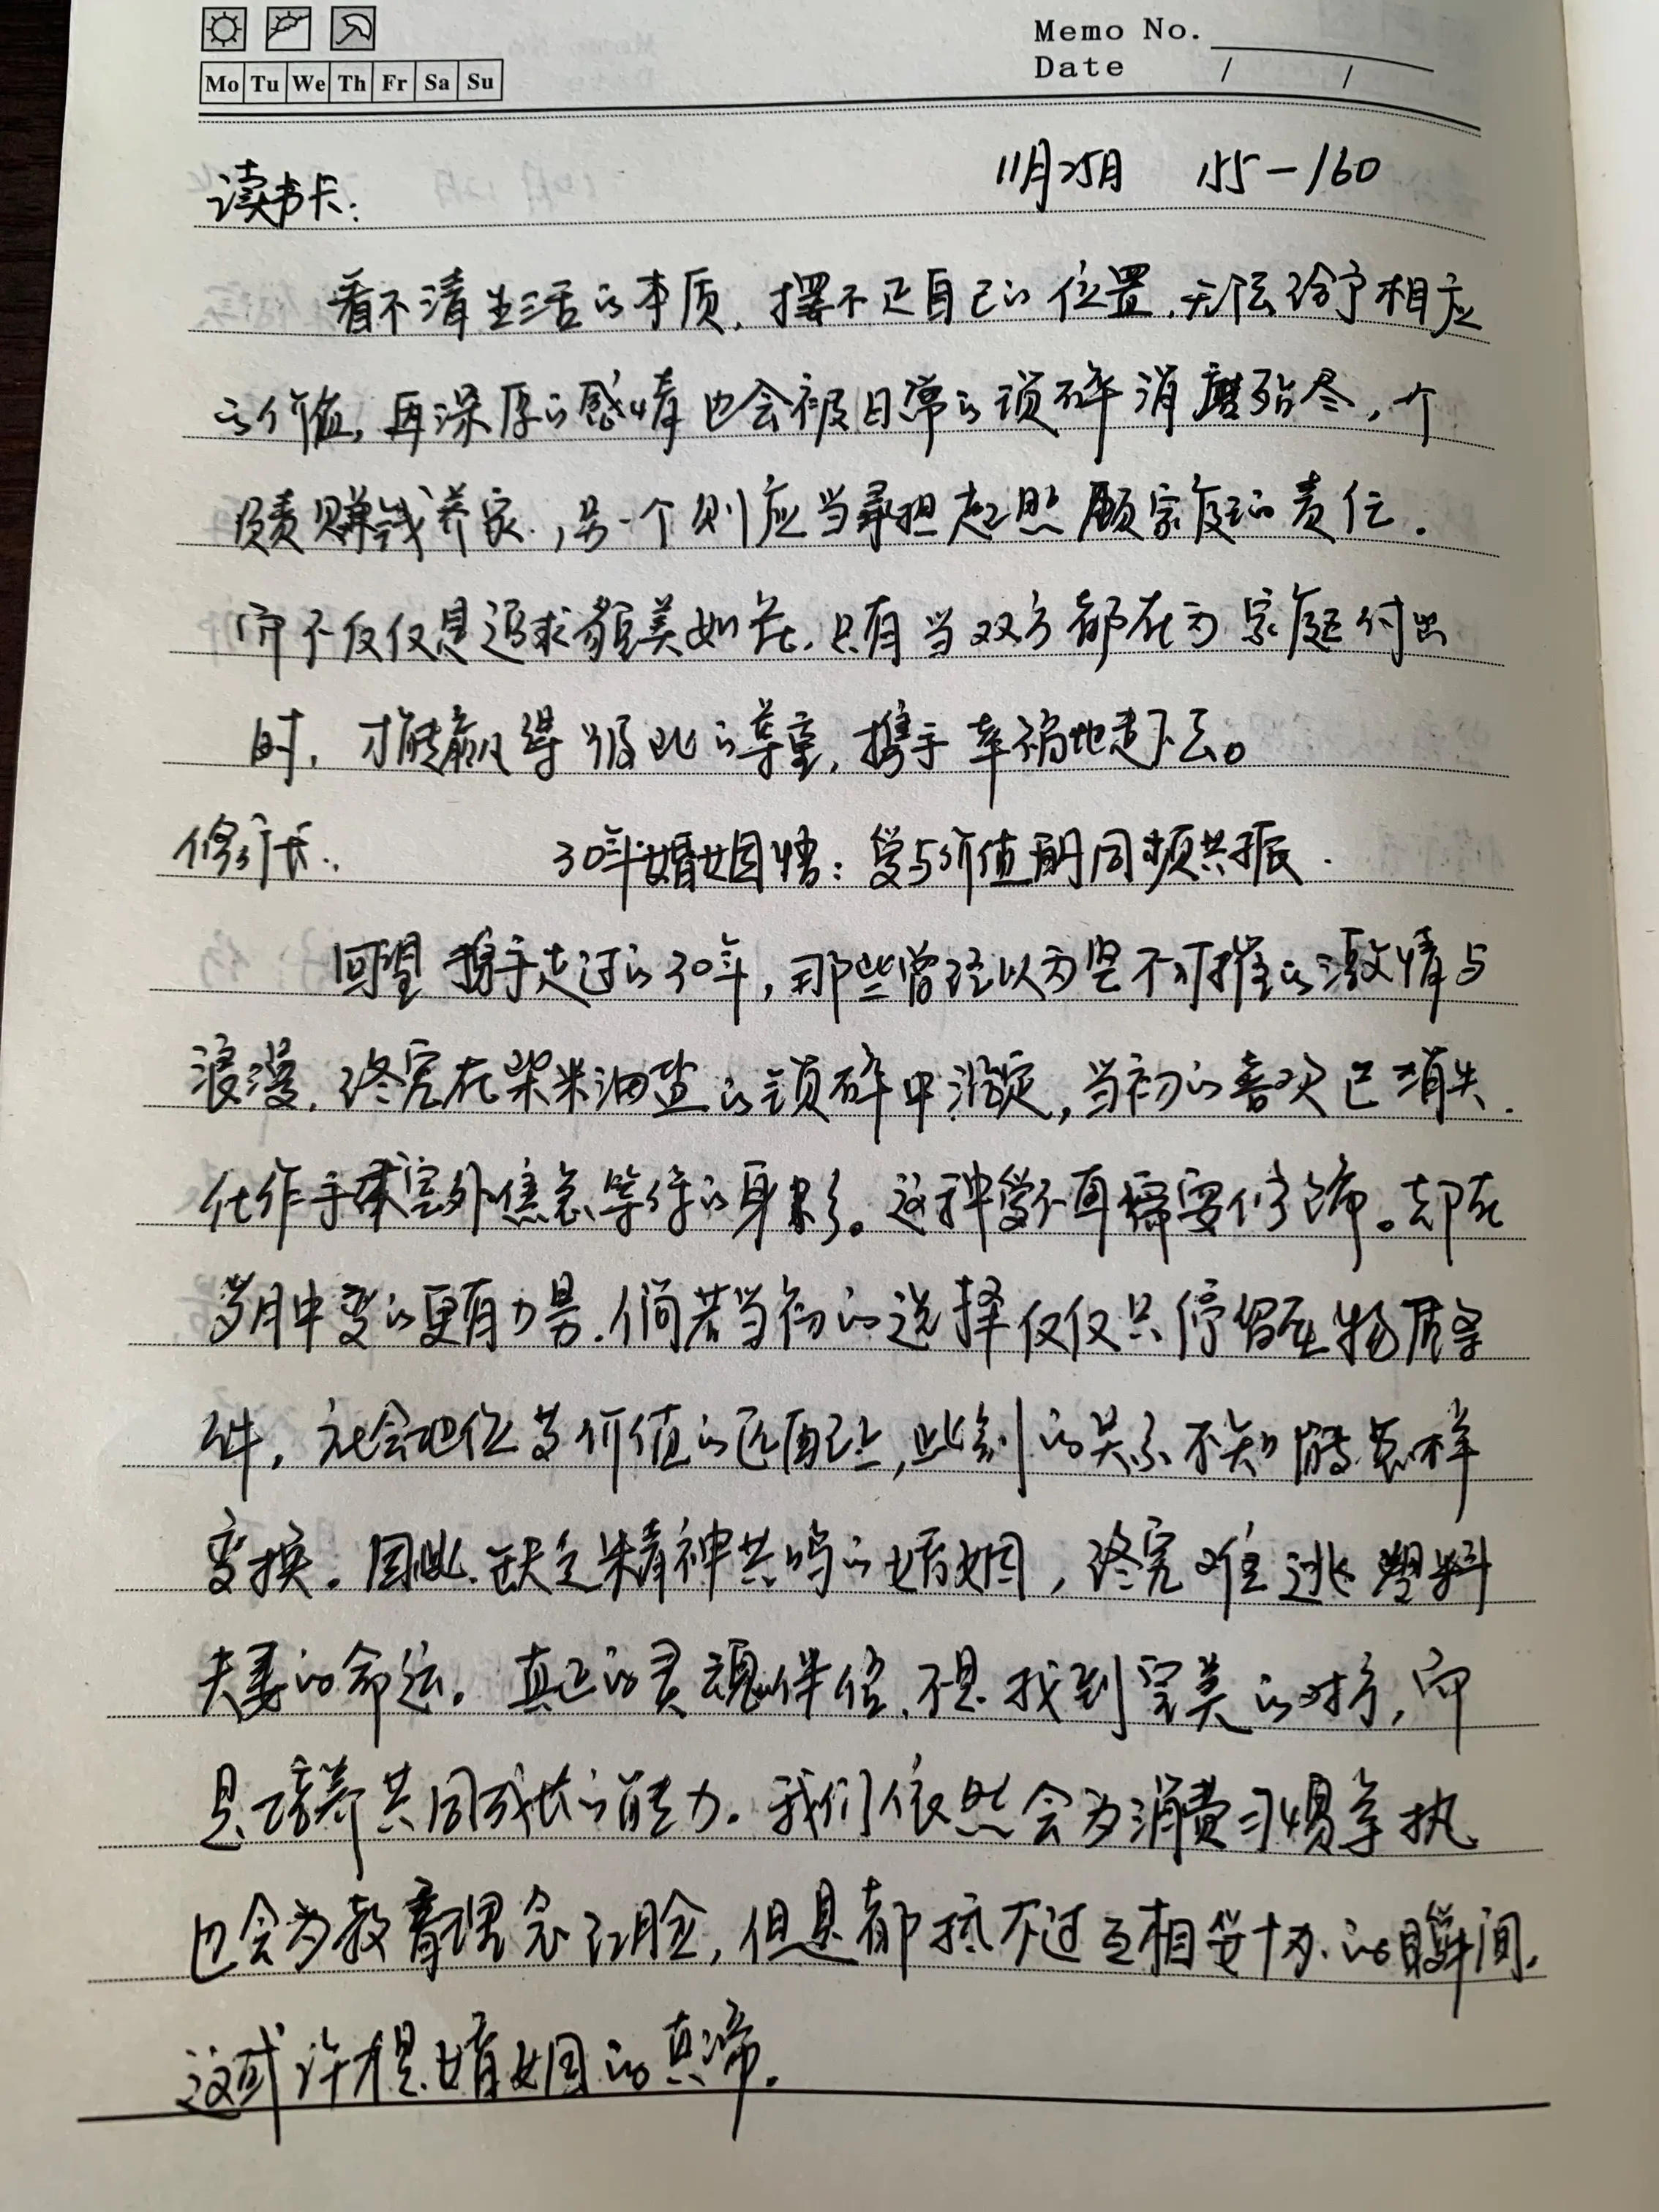 Memo No.
Mo Tu We Th Fr Sa Su
Date / /
11月25日 155-160
读书卡:
看不清生活的本质，摆不正自己的位置，无法给予相应
的价值，再深厚的感情也会被日常的琐碎消磨殆尽，一个
负责赚钱养家，另一个则应当承担起照顾家庭的责任。
而不仅仅是追求貌美如花，只有当双方都在为家庭付出
时，才能赢得彼此的尊重，携手幸福地走下去。
30年婚姻悟：爱与价值的同频共振.
回望携手走过的30年，那些曾经以为坚不可摧的激情与
浪漫，终究在柴米油盐的琐碎中沉淀，当初的喜欢已消失.
化作手术室外焦急等待的身影。这种爱不再需要修饰。却在
岁月中变的更有力量.倘若当初的选择仅仅只停留在物质条
件，社会地位等价值的匹配上，此刻的关系不知能怎样
变换。因此.缺乏精神共鸣的婚姻，终究难逃塑料
夫妻的命运。真正的灵魂伴侣，不是找到完美的对方，而
是培养共同成长的能力。我们依然会为消费习惯争执
也会为教育理念红脸，但是都抵不过互相妥协的瞬间.
这或许才是婚姻的真谛.